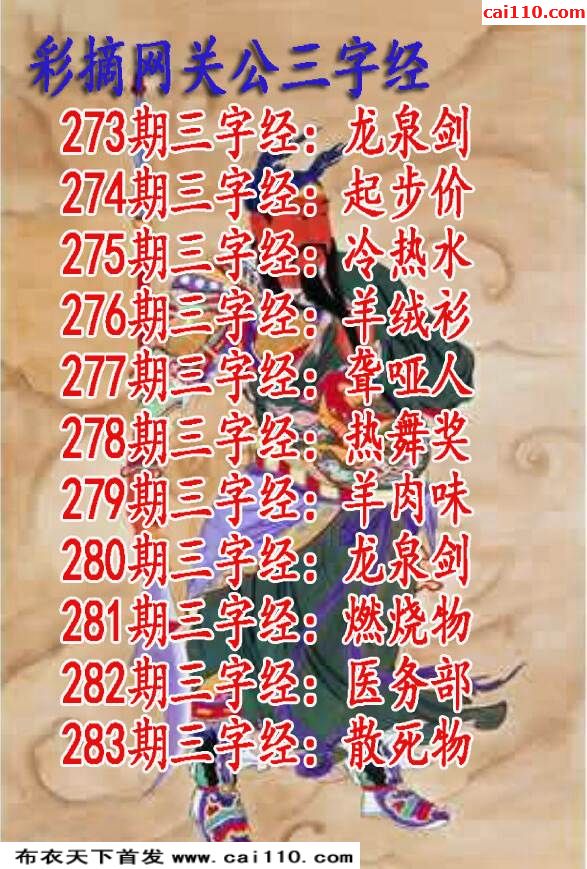 cai110.com
彩摘网关公三字经
273期三字经：龙泉剑
274期三字经：起步价
275期三字经：冷热水
276期三字经：羊绒衫
277期三字经：聋哑人
278期三字经：热舞奖
279期三字经：羊肉味
280期三字经：龙泉剑
281期三字经：燃烧物
282期三字经：医务部
283期三字经：散死物
布衣天下首发 www.cai110.com